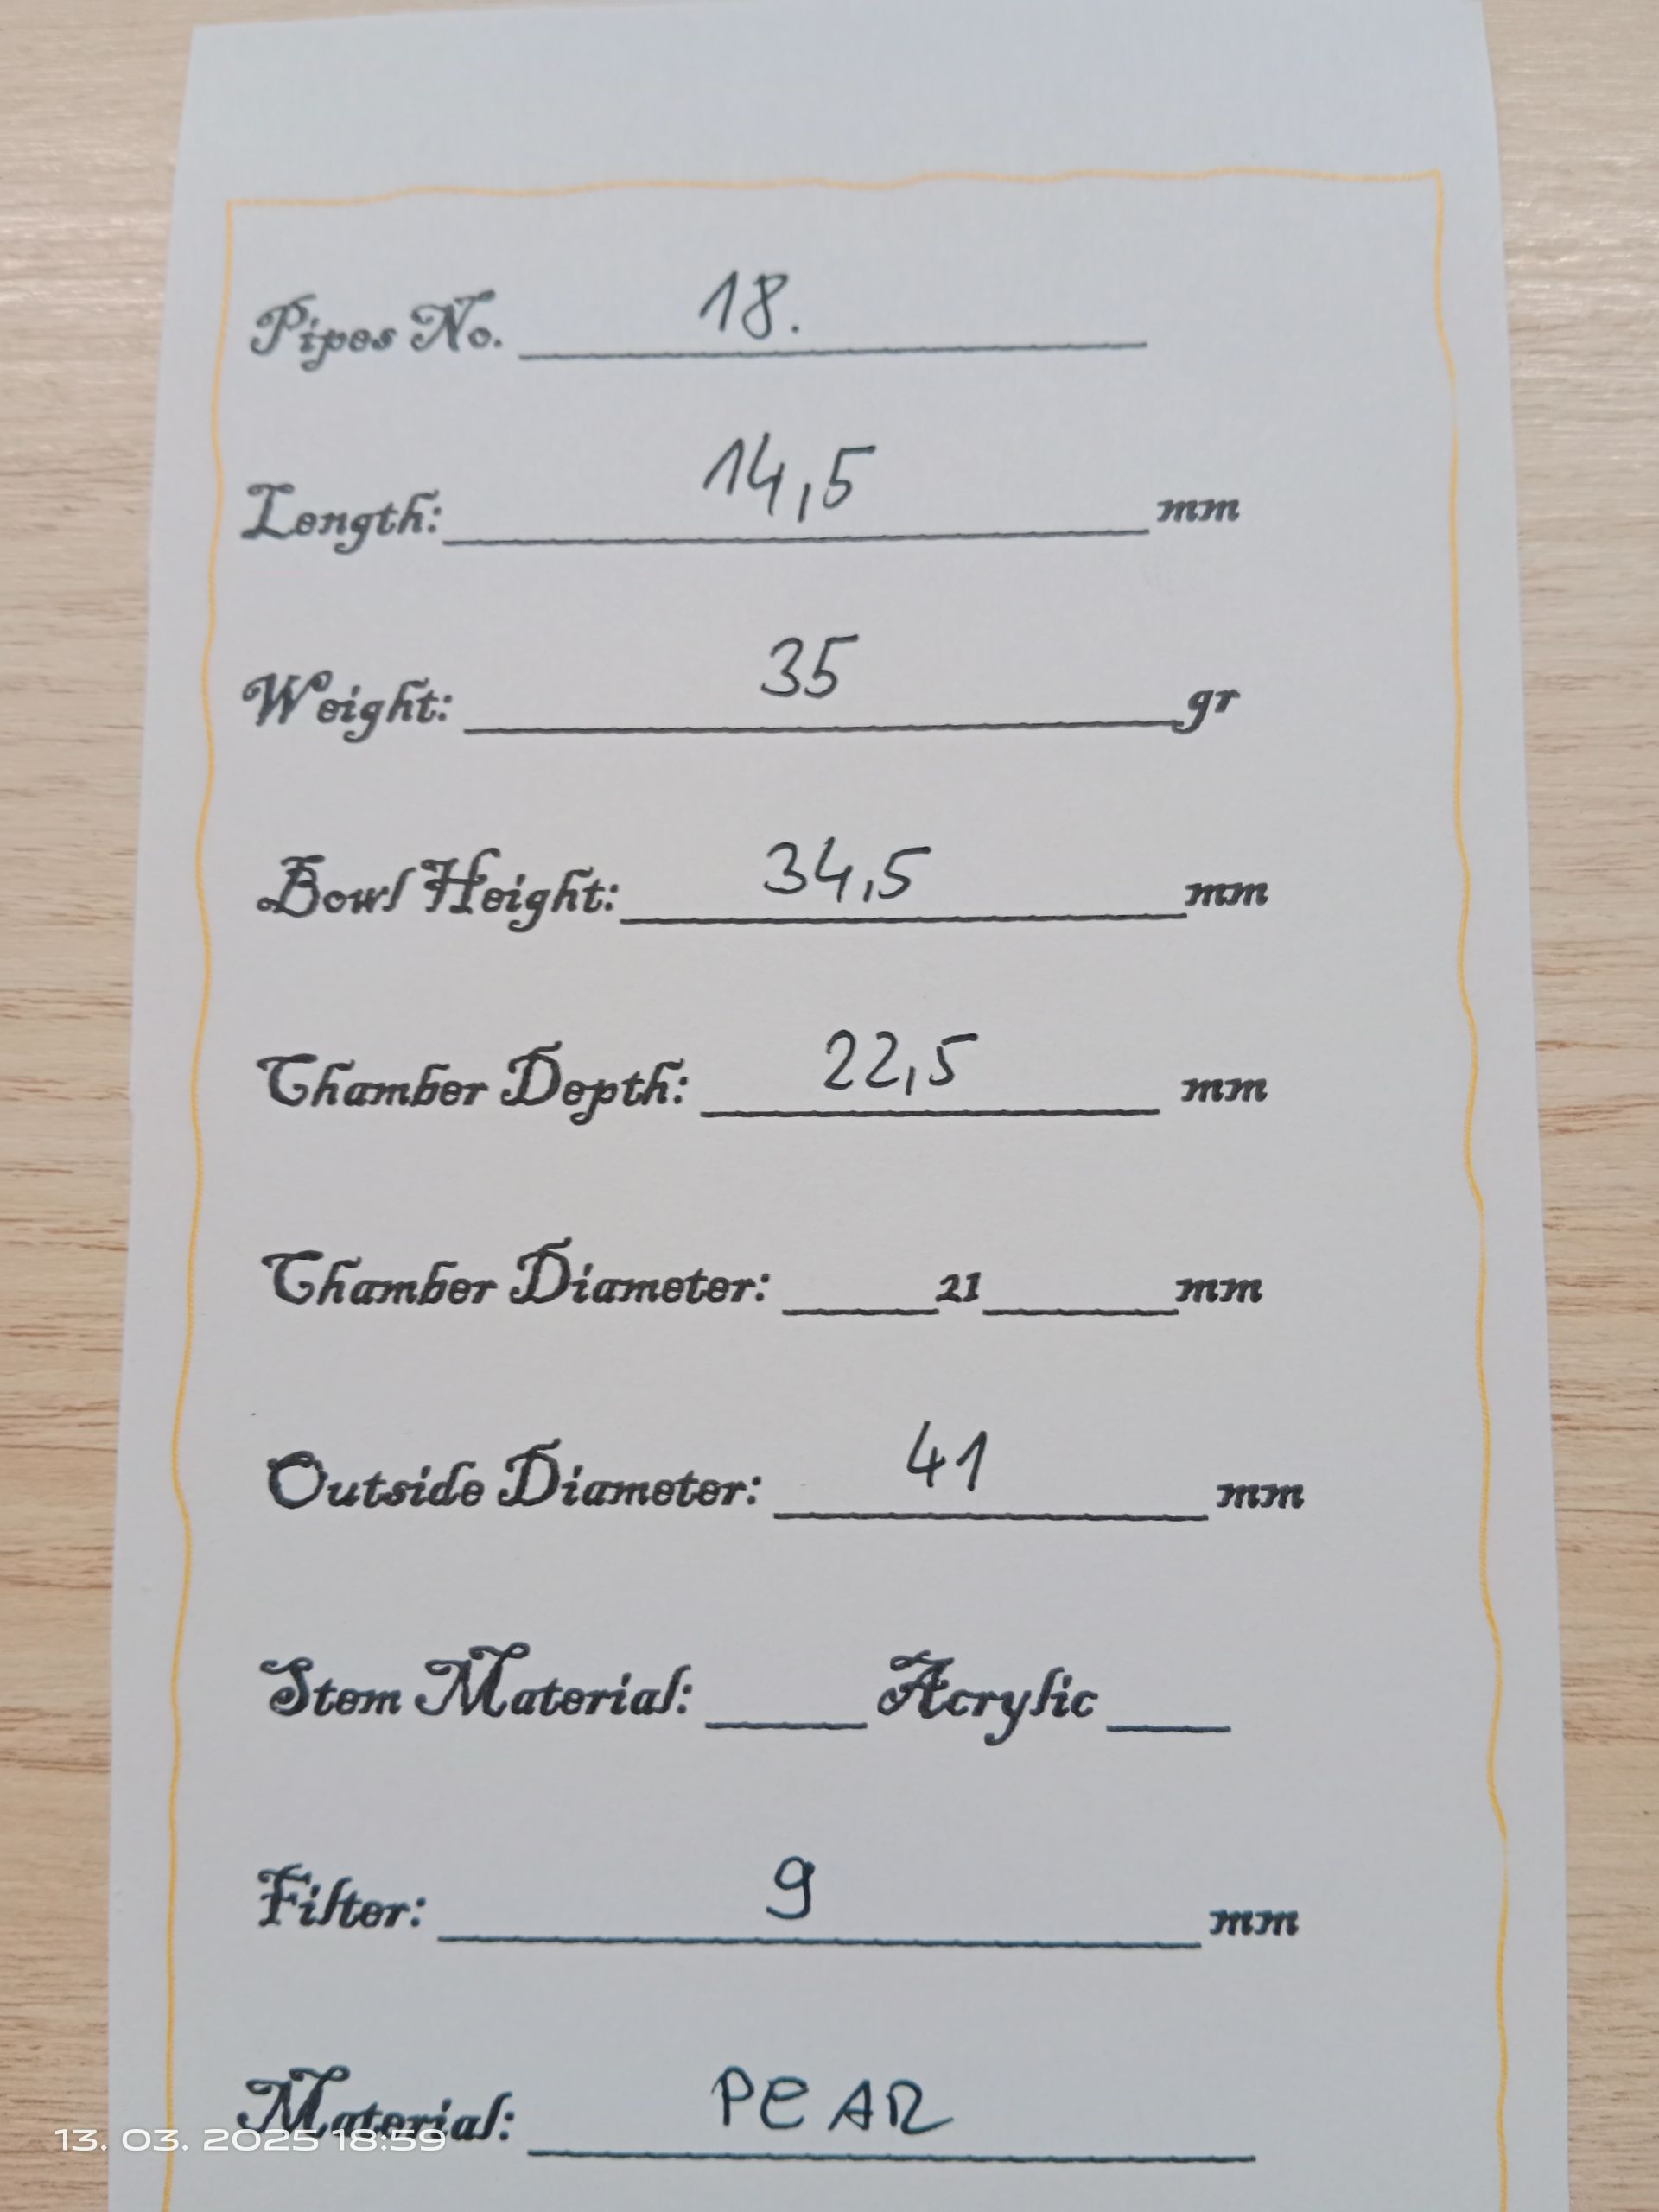 Pipes No. 18.
Length: 14,5 mm
Weight: 35 gr
Bowl Height: 34,5 mm
Chamber Depth: 22,5 mm
Chamber Diameter: 21 mm
Outside Diameter: 41 mm
Stem Material: Acrylic
Filter: 9 mm
Material: PEAR
13. 03. 2025 18:59